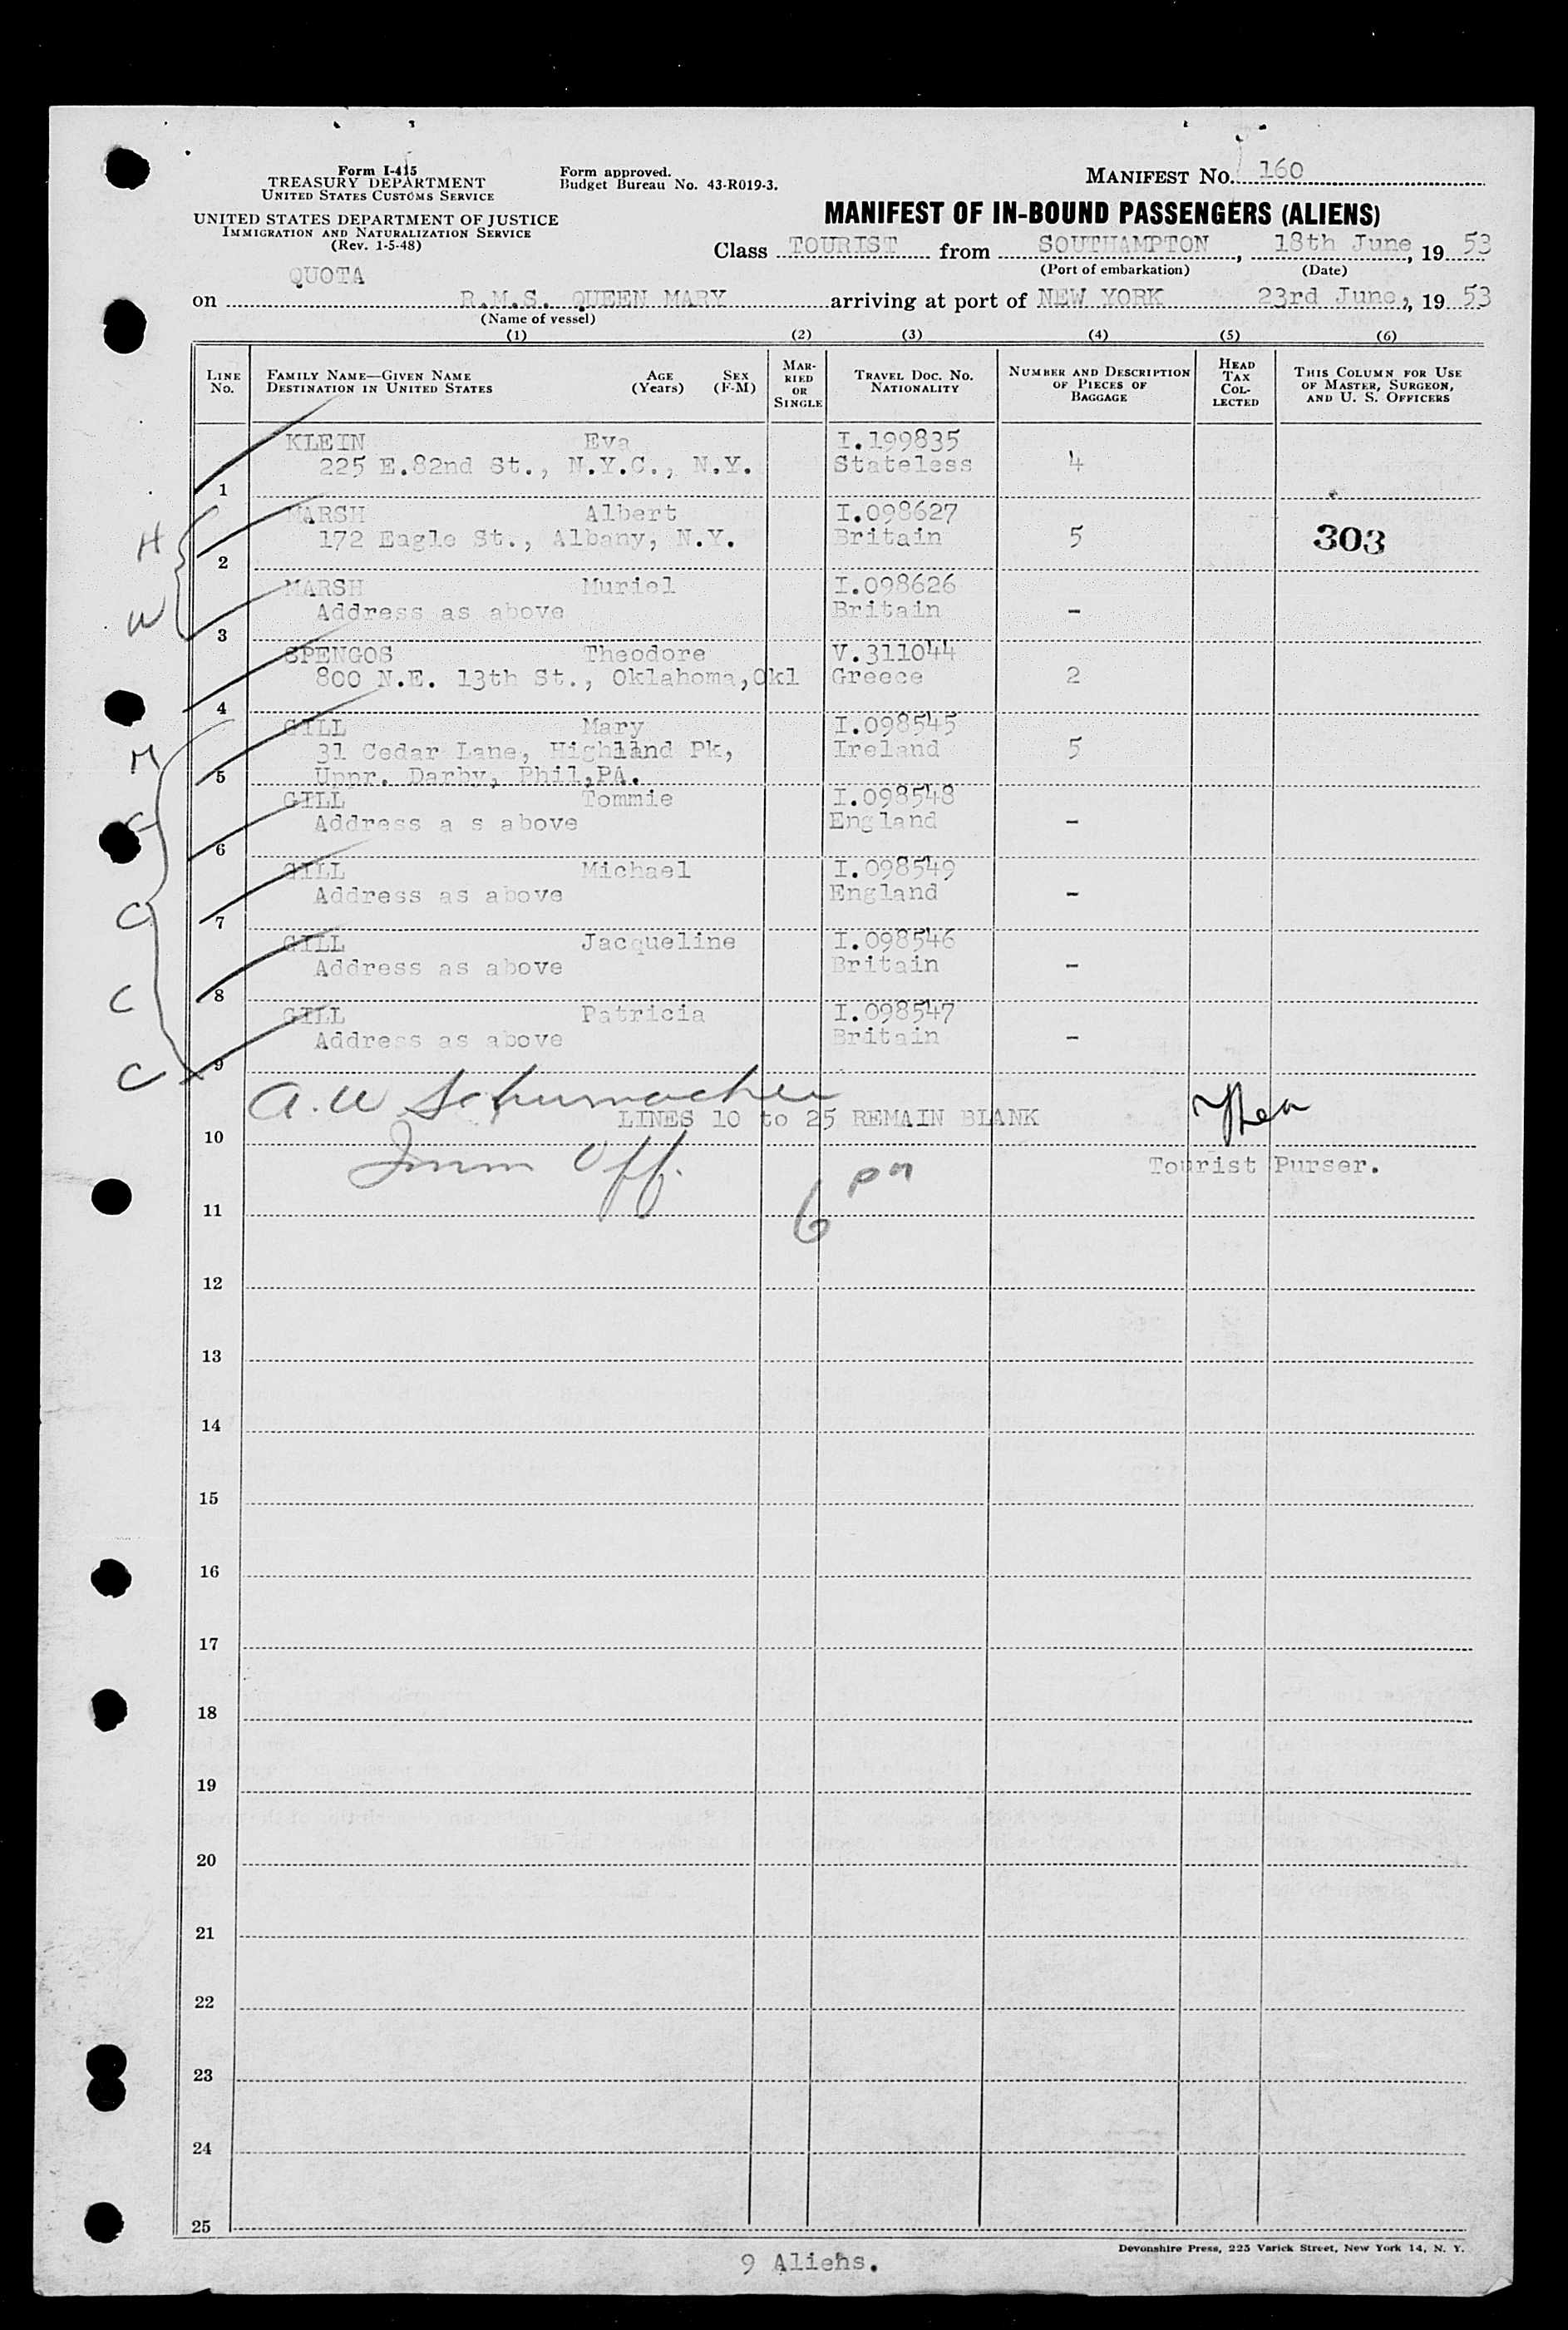 Form I-415
TREASURY DEPARTMENT
UNITED STATES CUSTOMS SERVICE
UNITED STATES DEPARTMENT OF JUSTICE
IMMIGRATION AND NATURALIZATION SERVICE
(Rev. 1-5-48)
Form approved.
Budget Bureau No. 43-R019-3.
MANIFEST NO. 160
MANIFEST OF IN-BOUND PASSENGERS (ALIENS)
Class TOURIST from SOUTHAMPTON, 18th June, 19 53
(Port of embarkation) (Date)
QUOTA
on R.M.S. QUEEN MARY arriving at port of NEW YORK 23rd June, 19 53
(Name of vessel)
(1) (2) (3) (4) (5) (6)
LINE NO. FAMILY NAME—GIVEN NAME DESTINATION IN UNITED STATES AGE (Years) SEX (F-M) MARRIED OR SINGLE TRAVEL DOC. NO. NATIONALITY NUMBER AND DESCRIPTION OF PIECES OF BAGGAGE HEAD TAX COLLECTED THIS COLUMN FOR USE OF MASTER, SURGEON, AND U. S. OFFICERS
KLEIN Eva I.199835
225 E.82nd St., N.Y.C., N.Y. Stateless 4
1
MARSH Albert I.098627
H 172 Eagle St., Albany, N.Y. Britain 5 303
2
MARSH Muriel I.098626
W Address as above Britain -
3
SPENGOS Theodore V.311044
800 N.E. 13th St., Oklahoma,Okl Greece 2
4
GILL Mary I.098545
M 31 Cedar Lane, Highland Pk, Ireland 5
5 Uppr. Darby, Phil,PA.
GILL Tommie I.098548
C Address a s above England -
6
GILL Michael I.098549
Address as above England -
C 7
GILL Jacqueline I.098546
Address as above Britain -
C 8
GILL Patricia I.098547
Address as above Britain -
C 9
A. W Schumacher
LINES 10 to 25 REMAIN BLANK
10
Imm Off. Tourist Purser.
6 pm
11
12
13
14
15
16
17
18
19
20
21
22
23
24
25
Devonshire Press, 225 Varick Street, New York 14, N. Y.
9 Aliens.